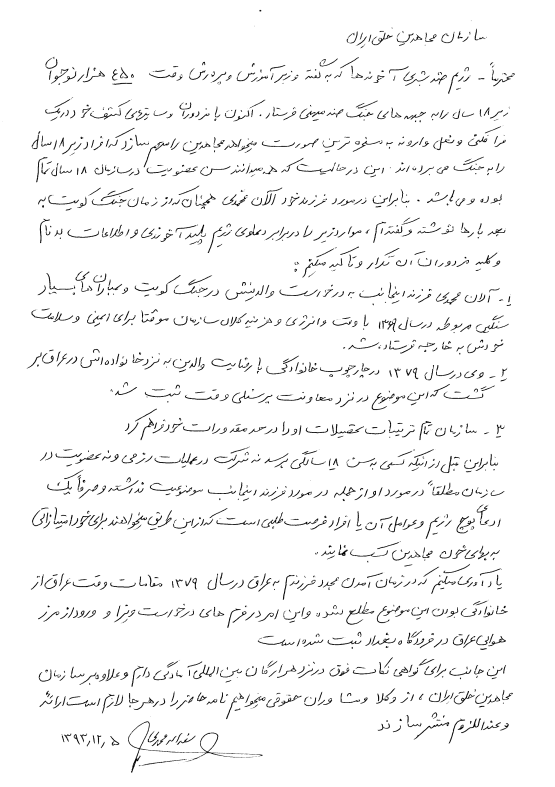 سازمان مجاهدین خلق ایران
محترماً - رژیم ضد بشری آخوندها که به گفته وزیر آموزش و پرورش وقت ۴۵۰ هزار نوجوان
زیر ۱۸ سال را به جبهه های جنگ ضد میهنی فرستاد. اکنون با مزدوران و سایتهای کثیف خود در یک
فرافکنی و نعل وارونه به مسخره ترین صورت میخواهد مجاهدین را متهم سازد که افراد زیر ۱۸ سال
را به جنگ می برده اند. این در حالیست که همه میدانند سن عضویت در سازمان ۱۸ سال تمام
بوده و می باشد. بنابراین در مورد فرزند خود آلان محمدی همچنان که از زمان جنگ کویت به
بعد بارها نوشته و گفته ام، موارد زیر را در برابر دعاوی رژیم پلید آخوندی و اطلاعات بدنام
و کلیه مزدوران آن تکرار و تاکید میکنم:
۱- آلان محمدی فرزند اینجانب به درخواست والدینش در جنگ کویت و بمباران های بسیار
سنگین مربوطه در سال ۱۳۶۹ با وقت و انرژی و هزینه کلان سازمان موقتا برای ایمنی و سلامت
خودش به خارجه فرستاده شد.
۲- وی در سال ۱۳۷۹ در چارچوب خانوادگی با رضایت والدین به نزد خانواده اش در عراق بر
گشت که این موضوع در نزد معاونت پرسنلی وقت ثبت شد.
۳- سازمان تمام ترتیبات تحصیلات او را در حد مقدورات خود فراهم کرد
بنابراین قبل از آنکه کسی به سن ۱۸ سالگی برسد نه شرکت در عملیات رزمی و نه عضویت در
سازمان مطلقاً در مورد او از جمله در مورد فرزند اینجانب موضوعیت نداشته و صرفاً یک
ادعای پوچ رژیم و عوامل آن یا افراد فرصت طلبی است که از این طریق میخواهند برای خود امتیازاتی
به بهای خون مجاهدین کسب نمایند.
یادآوری میکنم که در زمان آمدن مجدد فرزندم به عراق در سال ۱۳۷۹ مقامات وقت عراق از
خانوادگی بودن این موضوع مطلع شده و این امر در فرم های درخواست ویزا و ورود از مرز
هوایی عراق در فرودگاه بغداد ثبت شده است
این جانب برای گواهی نکات فوق در نزد هر ارگان بین المللی آمادگی دارم و علاوه بر سازمان
مجاهدین خلق ایران، از وکلا و مشاوران حقوقی میخواهم نامه حاضر را در هر جا لازم است ارائه
و عنداللزوم منتشر سازند
محمدی ۱۳۹۳،۱۲،۵